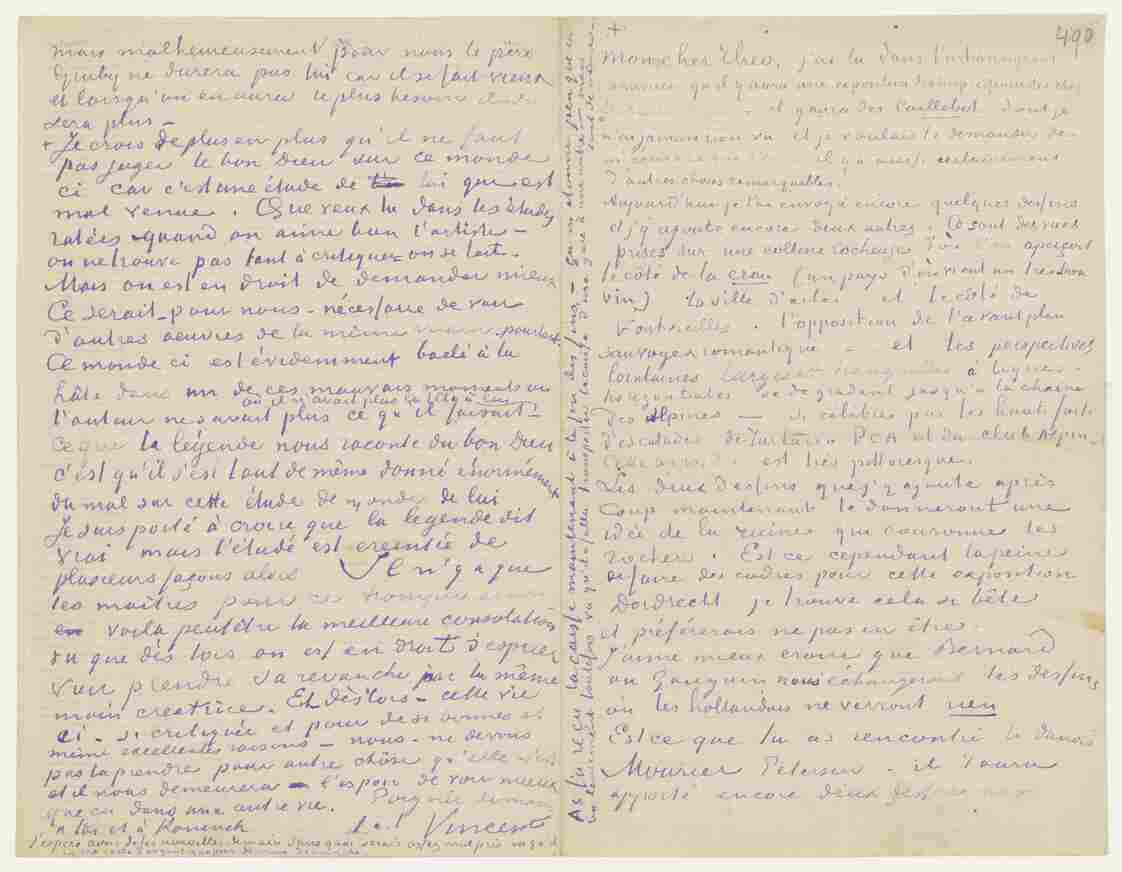 mais malheureusement pour nous le père
Gruby ne durera pas lui car il se fait vieux
et lorsqu'on en aura le plus besoin
sera plus –
+ Je crois de plus en plus qu'il ne faut
pas juger le bon Dieu sur ce monde
ci car c'est une étude de lui qui est
mal venue. Que veux tu dans les études
ratées – quand on aime bien l'artiste –
on ne trouve pas tant à critiquer – on se tait.
Mais on est en droit de demander mieux
Ce serait – pour nous – nécessaire de voir
d'autres oeuvres de la même main pourtant
Ce monde ci est évidemment baclé à la
hâte dans un de ces mauvais moments où
l'auteur ne savait plus ce qu'il faisait –
où il n'avait plus sa tête à lui.
Ce que la légende nous raconte du bon Dieu
c'est qu'il s'est tout de même donné énormément
du mal sur cette étude de monde de lui
Je suis porté à croire que la legende dit
vrai mais l'étude est ereintée de
plusieurs façons alors Il n'y a que
les maîtres pour
voila peutêtre la meilleure consolation
vu que dès lors on est en droit d'espérer
voir prendre sa revanche par la même
main creatrice. Et dès lors – cette vie
ci – si critiquée et pour de si bonnes et
même excellentes raisons – nous – ne devons
pas la prendre pour autre chôse qu'elle n'est
et il nous demeurera – l'espoir de voir mieux
que ca dans une autre vie. Poignée de main
à toi et à Koninck
t. à t. Vincent
J'espère avoir de tes nouvelles demain sans quoi serais assez mal pris vu que
d'argent que pour demain dimanche
As tu reçu la caisse maintenant à la fin des fins – ça m'étonne peu que
vu qu'il a fallu
490
+
Mon cher Theo, j'ai lu dans l'intransigeant
qu'il y aura une exposition des impressionistes chez
il y aura des Caillebot dont je
n'ai jamais rien vu et je voulais te demander de
il y a aussi certainement
d'autres choses remarquables.
Aujourd'hui je t'ai envoyé encore quelques dessins
et j'y ajoute encore deux autres. Ce sont des vues
prises sur une colline rocheuse d'où l'on aperçoit
le côté de la crau (un pays d'où vient un tres bon
vin) la ville d'arles et le côté de
Fontvieilles. l'opposition de l'avant plan
sauvage & romantique – et les perspectives
lointaines larges & tranquilles à lignes
horizontales se degradant jusqu'à la chaine
des Alpines – si célèbres par les hauts faits
d'escalade de Tartarin P.C.A. et du club Alpin,
est très pittoresque.
Les deux dessins que j'y ajoute après
coup maintenant te donneront une
idée de la ruine qui couronne les
rochers. Est ce cependant la peine
de faire des cadres pour cette exposition
Dordrecht je trouve cela si bête
et préférerais ne pas en être.
J'aime mieux croire que Bernard
ou Gauguin nous échangerons des dessins
où les hollandais ne verront rien
Est ce que tu as rencontré le danois
Mourier Petersen – il t'aura
apporté encore deux dessins